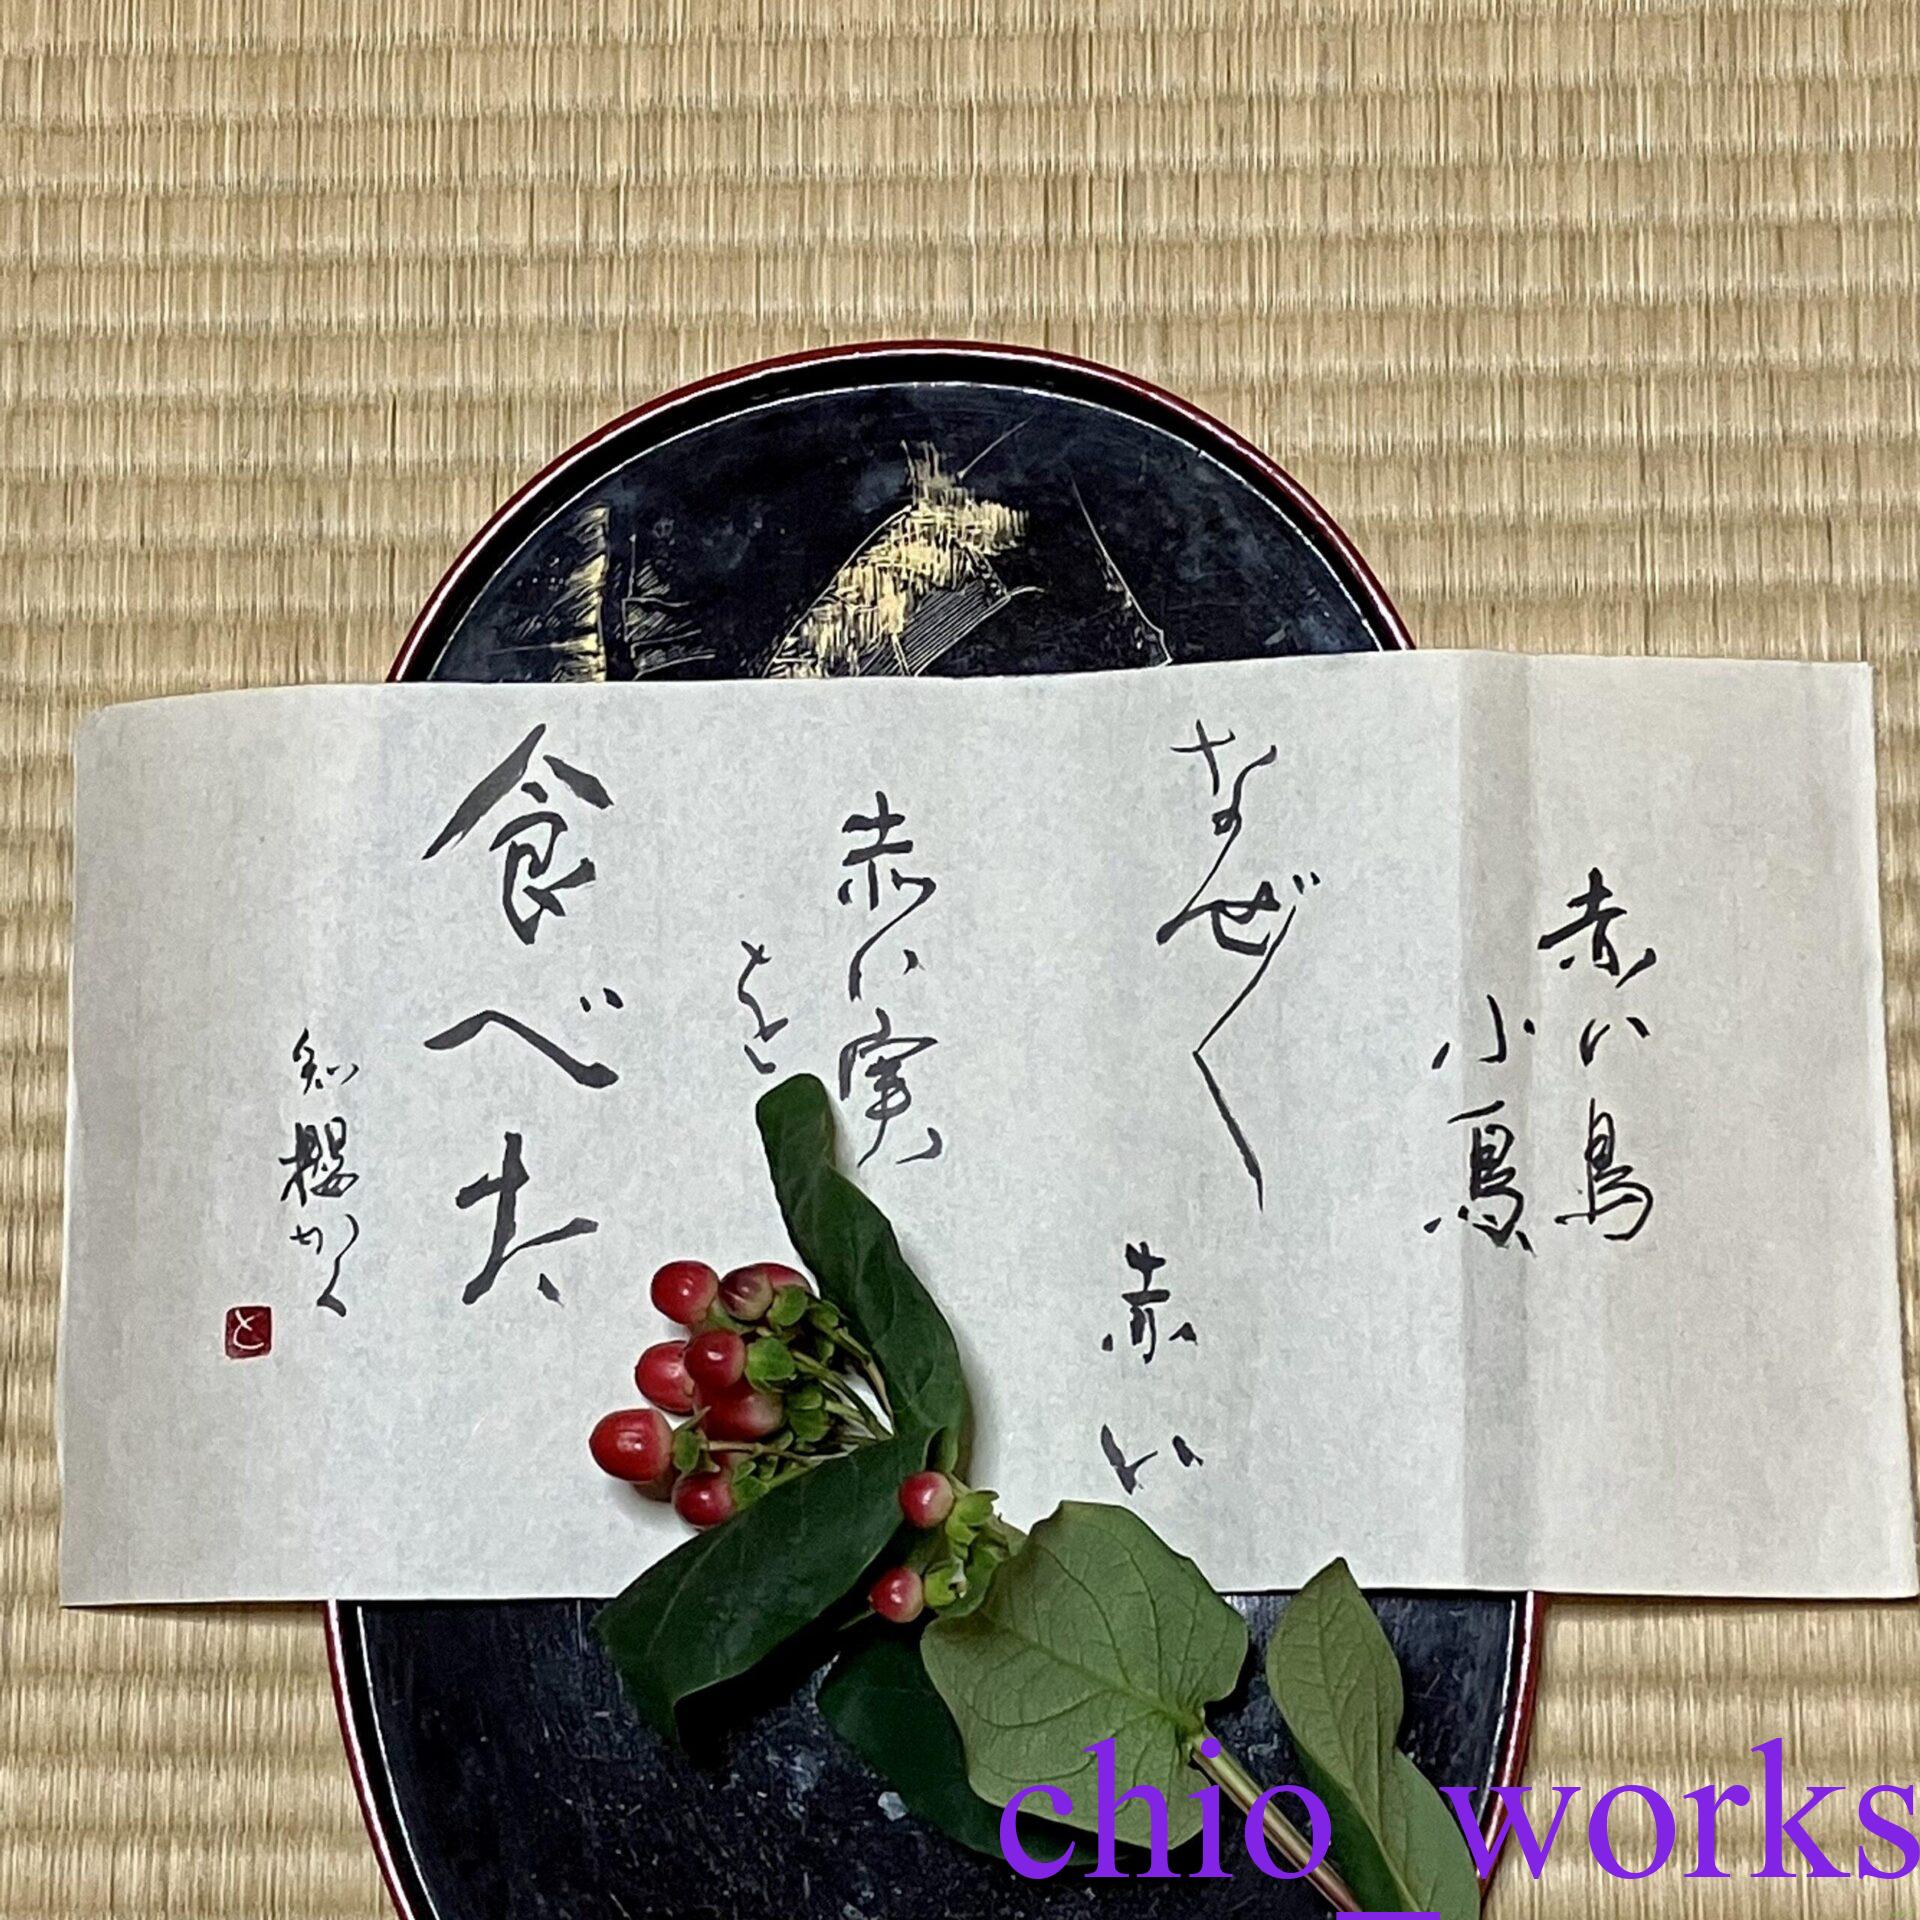 赤い鳥
小鳥
なぜ〱
赤い
赤い実
を
食べた
知櫻かく
と
chio_works